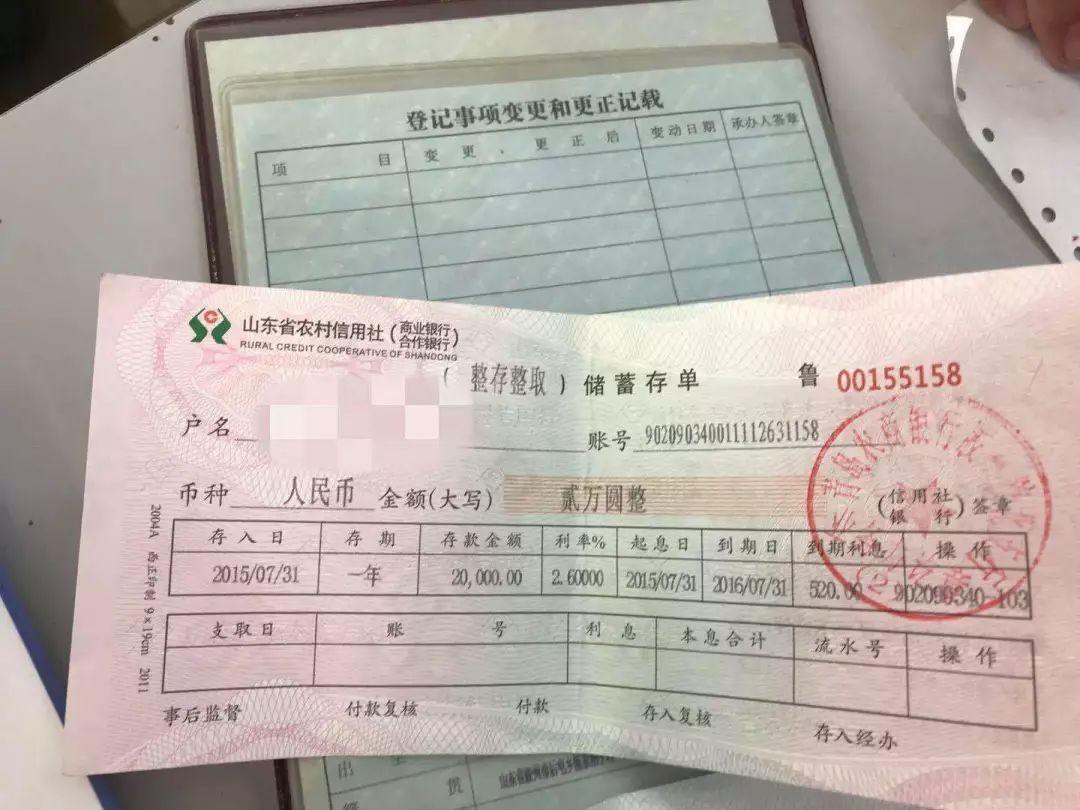 登记事项变更和更正记载
项 目 变 更 、 更 正 后 变动日期 承办人签章
山东省农村信用社(商业银行 合作银行)
RURAL CREDIT COOPERATIVE OF SHANDONG
(整存整取)储蓄存单 鲁 00155158
户名 账号 902090340011112631158
币种 人民币 金额(大写) 贰万圆整 (信用社 银行)签章
存入日 存期 存款金额 利率% 起息日 到期日 到期利息 操作
2015/07/31 一年 20,000.00 2.60000 2015/07/31 2016/07/31 520.00 902090340-103
支取日 账 号 利息 本息合计 流水号 操作
事后监督 付款复核 付款 存入复核 存入经办
2004A 9×19cm 2011